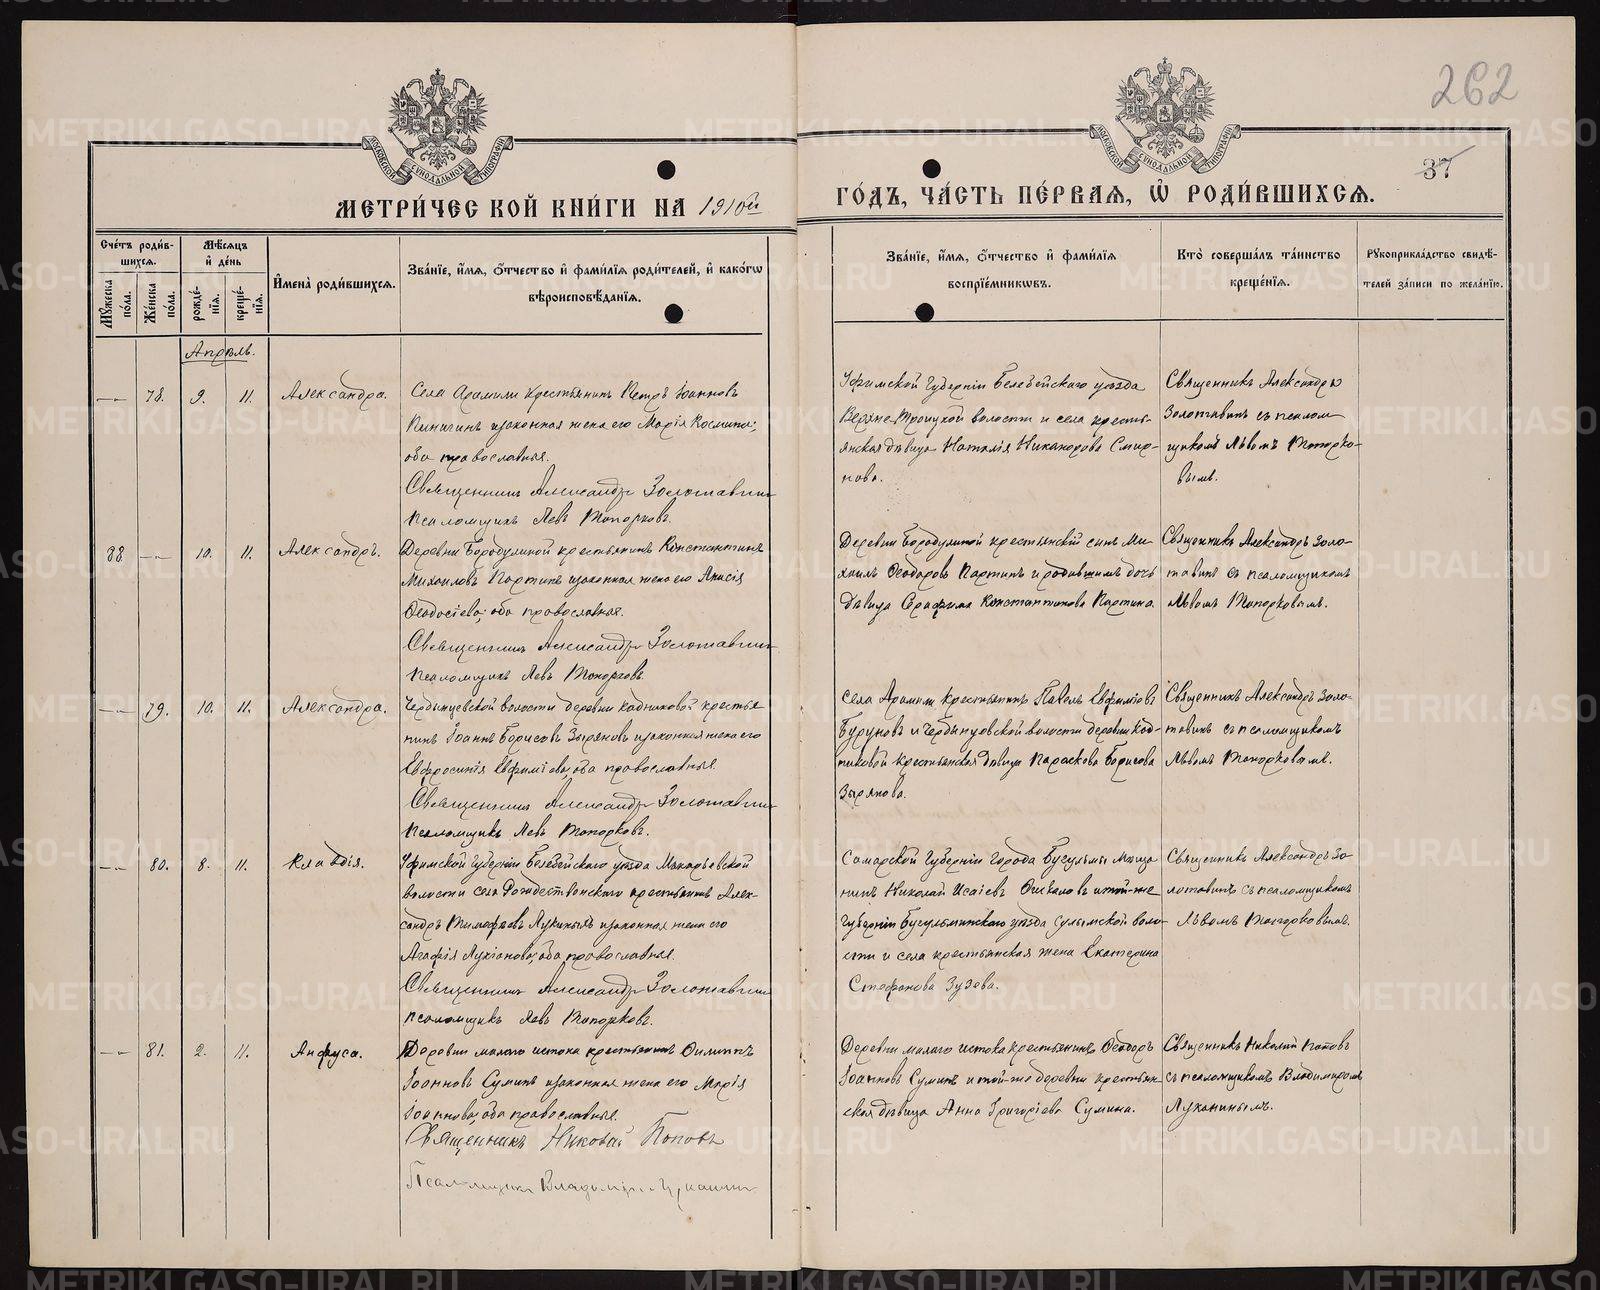 262
37
МЕТРИ́ЧЕСКОЙ КНИ́ГИ НА 1910й
ГО́ДЪ, ЧА́СТЬ ПЕ́РВАЯ, Ѡ҆ РОДИ́ВШИХСЯ.
МОСКОВСКОЙ СИНОДАЛЬНОЙ ТИПОГРАФІИ
МОСКОВСКОЙ СИНОДАЛЬНОЙ ТИПОГРАФІИ
Сче́тъ роди́вшихся.
Му́жеска по́ла.
Же́нска по́ла.
Мѣ́сяцъ и҆ де́нь
рожде́нїя.
креще́нїя.
И҆мена̀ роди́вшихся.
Зва́нїе, и҆́мя, ѻ҆́тчество и҆ фами́лїя роди́телей, и҆ како́гѡ
вѣроисповѣ́данїя.
Зва́нїе, и҆́мя, ѻ҆́тчество и҆ фами́лїя
воспрїе́мникѡвъ.
Кто̀ соверша́лъ та́инство
креще́нїя.
Рꙋкоприкла́дство свидѣ́-
телей за́писи по жела́нїю.
Апрѣль.
—
78.
9.
11.
Александра.
Села Арамили крестьянинъ Петръ Іоанновъ
Пиничинъ и законная жена его Марія Космина;
оба православные.
Священникъ Александръ Золотавинъ
Псаломщикъ Левъ Топорковъ.
Уфимской губерніи Белебейскаго уѣзда
Верхне-Троицкой волости и села кресть-
янская дѣвица Наталія Никанорова Смир-
нова.
Священникъ Александръ
Золотавинъ съ псалом-
щикомъ Львомъ Топорко-
вымъ.
88
—
10.
11.
Александръ.
Деревни Бородулиной крестьянинъ Константинъ
Михаиловъ Партинъ и законная жена его Анисія
Ѳеодосіева; оба православные.
Священникъ Александръ Золотавинъ
Псаломщикъ Левъ Топорковъ.
Деревни Бородулиной крестьянскій сынъ Ми-
хаилъ Ѳеодоровъ Партинъ и родившимъ дочь
дѣвица Серафима Константинова Партина.
Священникъ Александръ Золо-
тавинъ съ псаломщикомъ
Львомъ Топорковымъ.
—
79.
10.
11.
Александра.
волости деревни Кадниковой крестья-
нинъ Іоаннъ Борисовъ Зыряновъ и законная жена его
Евфросинія Евфиміева; оба православные.
Священникъ Александръ Золотавинъ
Псаломщикъ Левъ Топорковъ.
Села Арамили крестьянинъ Павелъ Евфиміовъ
Буруновъ и волости деревни Кад-
никовой крестьянская дѣвица Параскева Борисова
Зырянова.
Священникъ Александръ Золо-
тавинъ съ псаломщикомъ
Львомъ Топорковымъ.
—
80.
8.
11.
Клавдія.
Уфимской губерніи Белебейскаго уѣзда Макарьевской
волости села Рождественскаго крестьянинъ Алек-
сандръ Тимофѣевъ Лукиныхъ и законная жена его
Агафія Лукіанова; оба православные.
Священникъ Александръ Золотавинъ
Псаломщикъ Левъ Топорковъ.
Самарской губерніи города Бугульмы мѣща-
нинъ Николай Исаіевъ и той-же
губерніи Бугульминскаго уѣзда Сулымской воло-
сти и села крестьянская жена Екатерина
Стефанова Зуева.
Священникъ Александръ Зо-
лотавинъ съ псаломщикомъ
Львомъ Топорковымъ.
—
81.
2.
11.
Анфуса.
Деревни малаго истока крестьянинъ Филиппъ
Іоанновъ Суминъ и законная жена его Марія
Іоаннова; оба православные.
Священникъ Николай Поповъ
Псаломщикъ Владиміръ Луканинъ
Деревни малаго истока крестьянинъ Ѳеодоръ
Іоанновъ Суминъ и той-же деревни крестьян-
ская дѣвица Анна Григоріева Сумина.
Священникъ Николай Поповъ
съ псаломщикомъ Владиміромъ
Луканинымъ.
METRIKI.GASO-URAL.RU